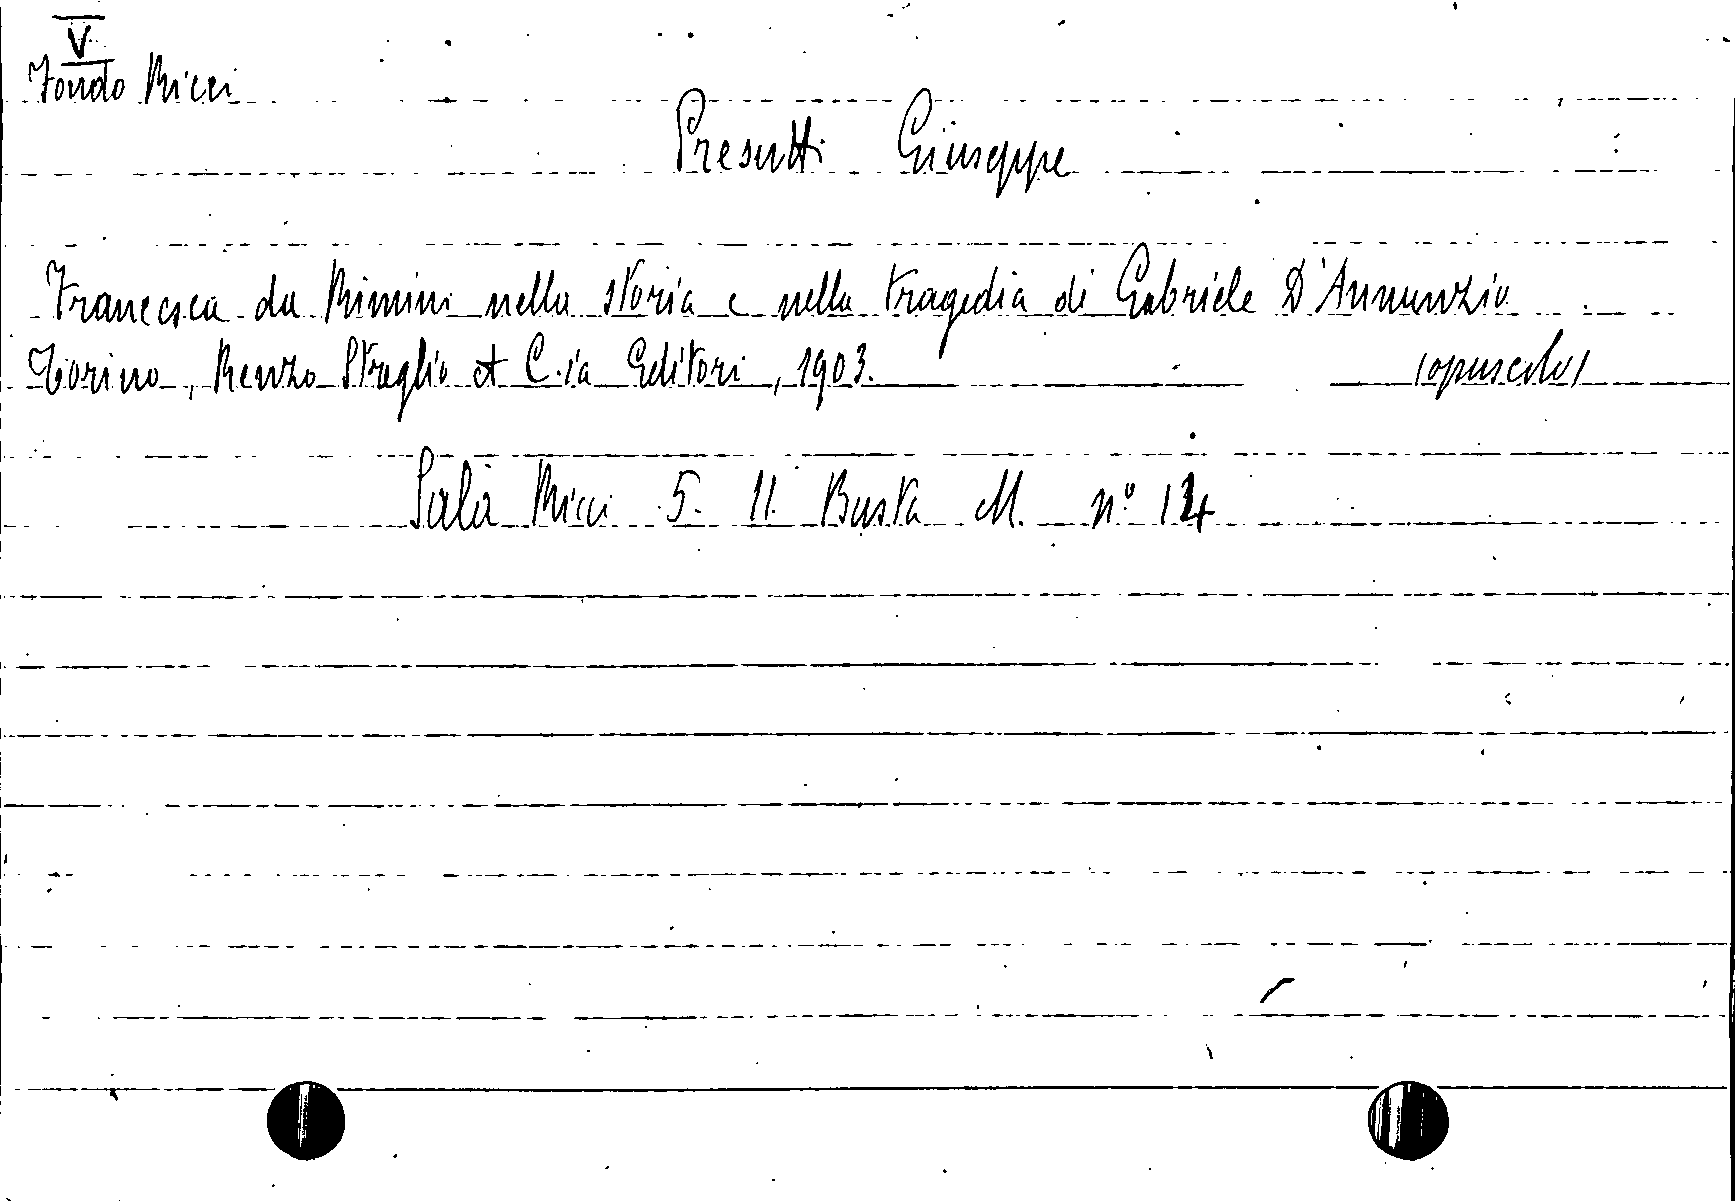 V
Fondo Ricci
Presutti Giuseppe
Francesca da Rimini nella storia e nella tragedia di Gabriele D'Annunzio
Torino, Renzo Streglio et C.ia Editori, 1903. (opuscolo)
Sala Ricci 5. 11. Busta M. n° 14